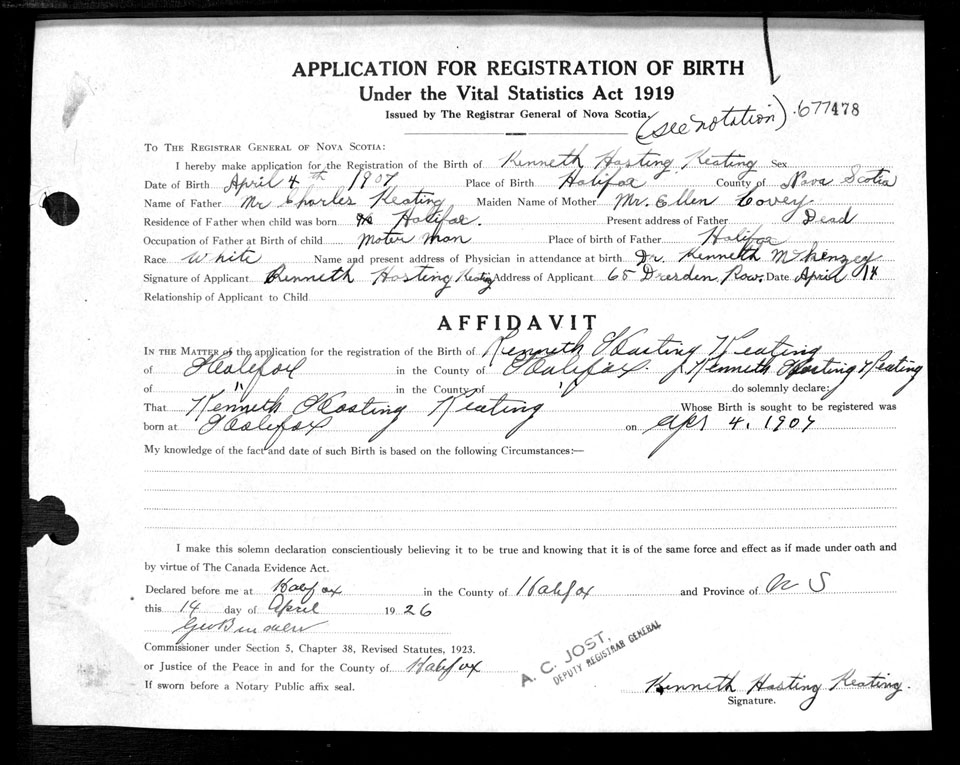 APPLICATION FOR REGISTRATION OF BIRTH
Under the Vital Statistics Act 1919
Issued by The Registrar General of Nova Scotia.
(see notation) 677478
TO THE REGISTRAR GENERAL OF NOVA SCOTIA:
I hereby make application for the Registration of the Birth of Kenneth Hasting Keating Sex
Date of Birth April 4th 1907 Place of Birth Halifax County of Nova Scotia
Name of Father Mr Charles Keating Maiden Name of Mother Mr. Ellen Covey
Residence of Father when child was born Halifax. Present address of Father Dead
Occupation of Father at Birth of child Moter man Place of birth of Father Halifax
Race White Name and present address of Physician in attendance at birth Dr. Kenneth McKenzey
Signature of Applicant Kenneth Hasting Keating Address of Applicant 65 Dresden Row. Date April 14
Relationship of Applicant to Child
AFFIDAVIT
IN THE MATTER of the application for the registration of the Birth of Kenneth Hasting Keating
of Halifax in the County of Halifax. I Kenneth Hasting Keating
of " in the County of " do solemnly declare:
That Kenneth Hasting Keating Whose Birth is sought to be registered was
born at Halifax on Apr 4, 1907
My knowledge of the fact and date of such Birth is based on the following Circumstances:—
I make this solemn declaration conscientiously believing it to be true and knowing that it is of the same force and effect as if made under oath and
by virtue of The Canada Evidence Act.
Declared before me at Halifax in the County of Halifax and Province of N S
this 14 day of April 1926
Commissioner under Section 5, Chapter 38, Revised Statutes, 1923.
or Justice of the Peace in and for the County of Halifax
If sworn before a Notary Public affix seal.
A. C. JOST,
DEPUTY REGISTRAR GENERAL
Kenneth Hasting Keating.
Signature.